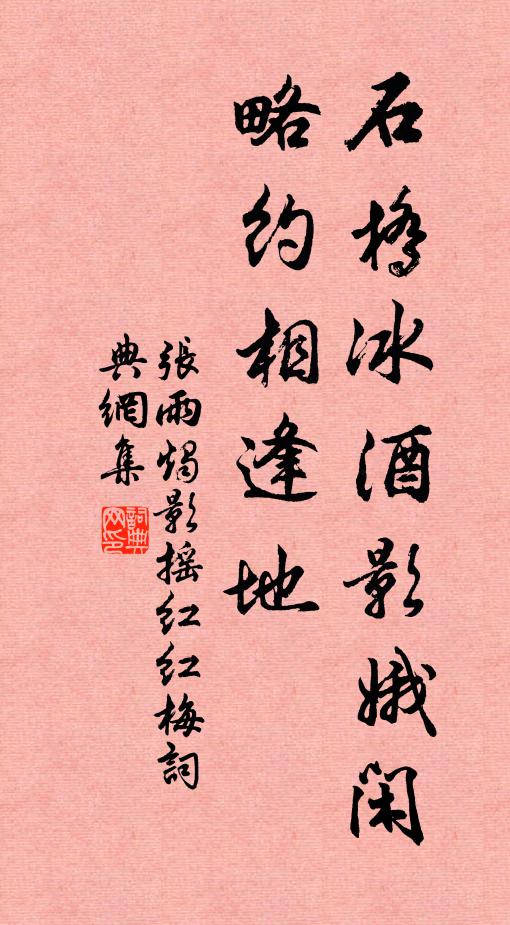 石橋冰酒影娥閑
略約相逢地
張雨燭影搖紅紅梅詞
典網集
詞典網印